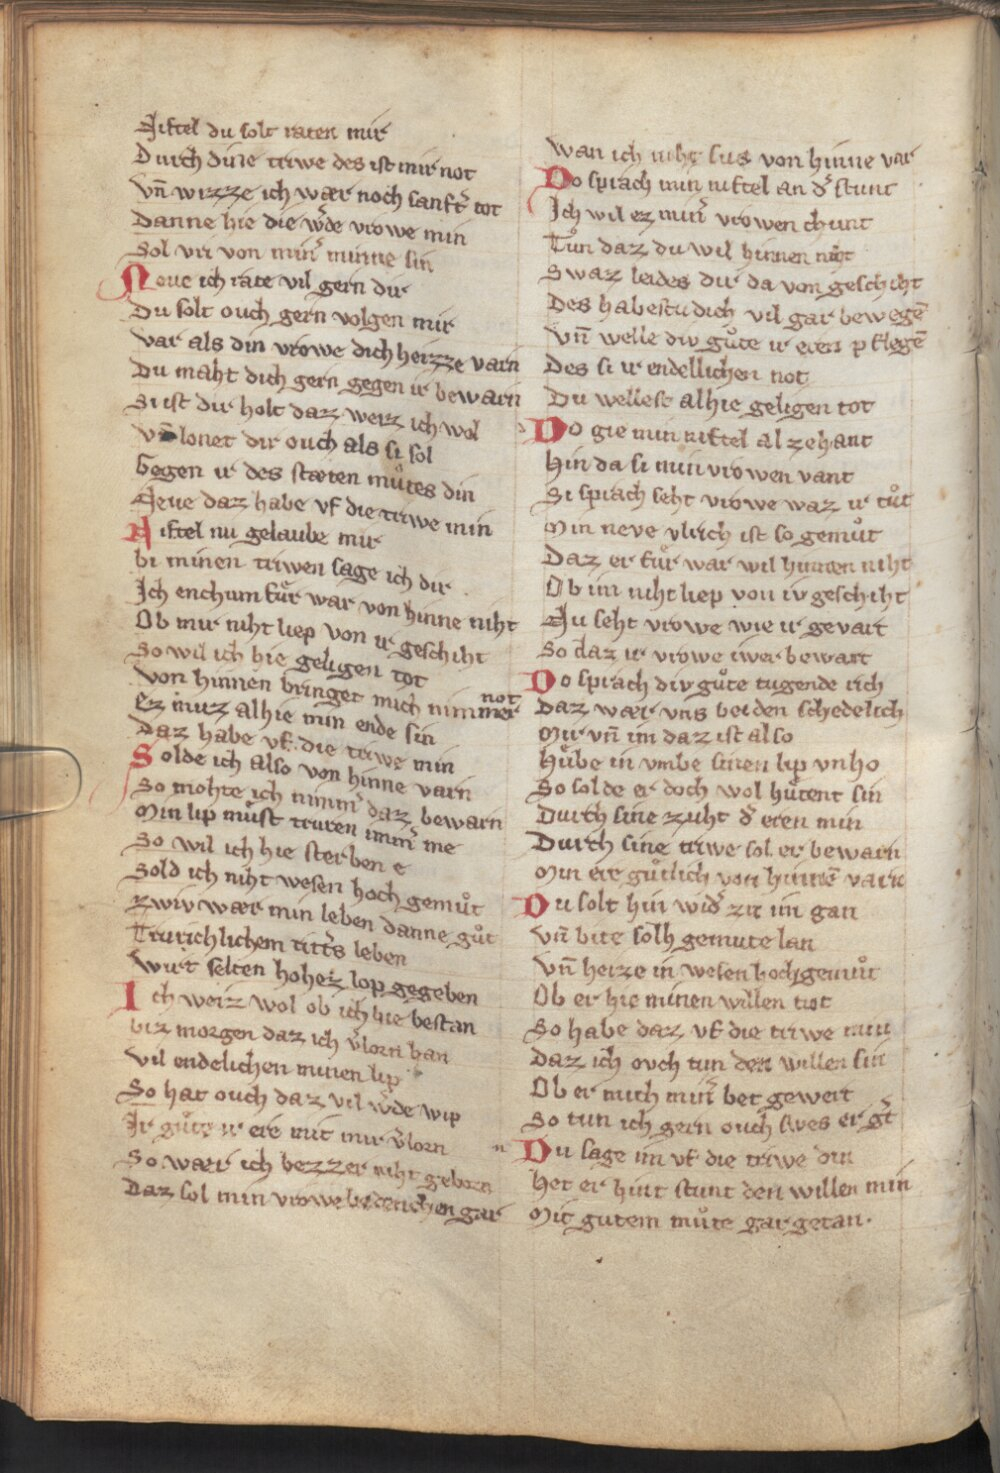 Niftel du solt raten mir
Durch dine triwe des ist mir not
Vn̄ wizze ich wær noch sanft͛ tot
Danne hie die w͛de vrowe min
Sol vri von min͛ minne sin
Neue ich rate vil gern dir
Du solt ouch gern volgen mir
Var als din vrowe dich heizze varn
Du maht dich gern gegen ir bewarn
Si ist dir holt daz weiz ich wol
Vn̄ lonet dir ouch als si sol
Gegen ir des stæten můtes din
Neue daz habe vf die triwe min
Niftel nu gelaube mir
bi minen triwen sage ich dir
Ich enchum fůr war von hinne niht
Ob mir niht liep von ir geschiht
So wil ich hie geligen tot
Von hinnen bringet mich nimmer not
Ez můz alhie min ende sin
Daz habe vf die triwe min
Solde ich also von hinne varn
So mohte ich nimm͛ daz bewarn
Min lip můst truren imm͛ me
So wil ich hie sterben e
Sold ich niht wesen hoch gemůt
Zwiv wær min leben danne gůt
Trurichlichem ritt͛s leben
Wirt selten hohez lop gegeben
Ich weiz wol ob ich hie bestan
biz morgen daz ich v͛lorn han
Vil endelichen minen lip
So hat ouch daz vil w͛de wip
Ir gůte ir ere mit mir v͛lorn
So wær ich bezzer niht geborn
Daz sol min vrowe bedenchen gar
Wan ich niht sus von hinne var
Do sprach min niftel an d͛ stunt
Ich wil ez min͛ vrowen chunt
Tůn daz du wil hinnen niht
Swaz leides dir da von geschiht
Des habestu dich vil gar bewegē
Vn̄ welle div gůte ir eren pflegē
Des si ir endellichen not
Du wellest alhie geligen tot
Do gie min niftel al zehant
Hin da si min vrowen vant
Si sprach seht vrowe waz ir tůt
Min neve vlrich ist so gemůt
Daz er fůr war wil hinnen niht
Ob im niht liep von iv geschiht
Nu seht vrowe wie ir gevart
So daz ir vrowe iwer bewart
Do sprach div gůte tugende rich
Daz wær vns beiden schedelich
Mir vn̄ im daz ist also
Hůbe in vmbe sinen lip vnho
So solde er doch wol hůtent sin
Durch sine zuht d͛ eren min
Durch sine triwe sol er bewarn
Min ere gůtlich von hinnē varn
Du solt hin wid͛ zu im gan
Vn̄ bite solh gemute lan
Vn̄ heize in wesen hochgemůt
Ob er hie minen willen tůt
So habe daz vf die triwe min
Daz ich ovch tun den willen sin
Ob er mich min͛ bet gewert
So tun ich gern ouch swes er g͛t
Du sage im vf die triwe din
Het er hint stunt den willen min
Mit gutem můte gar getan.